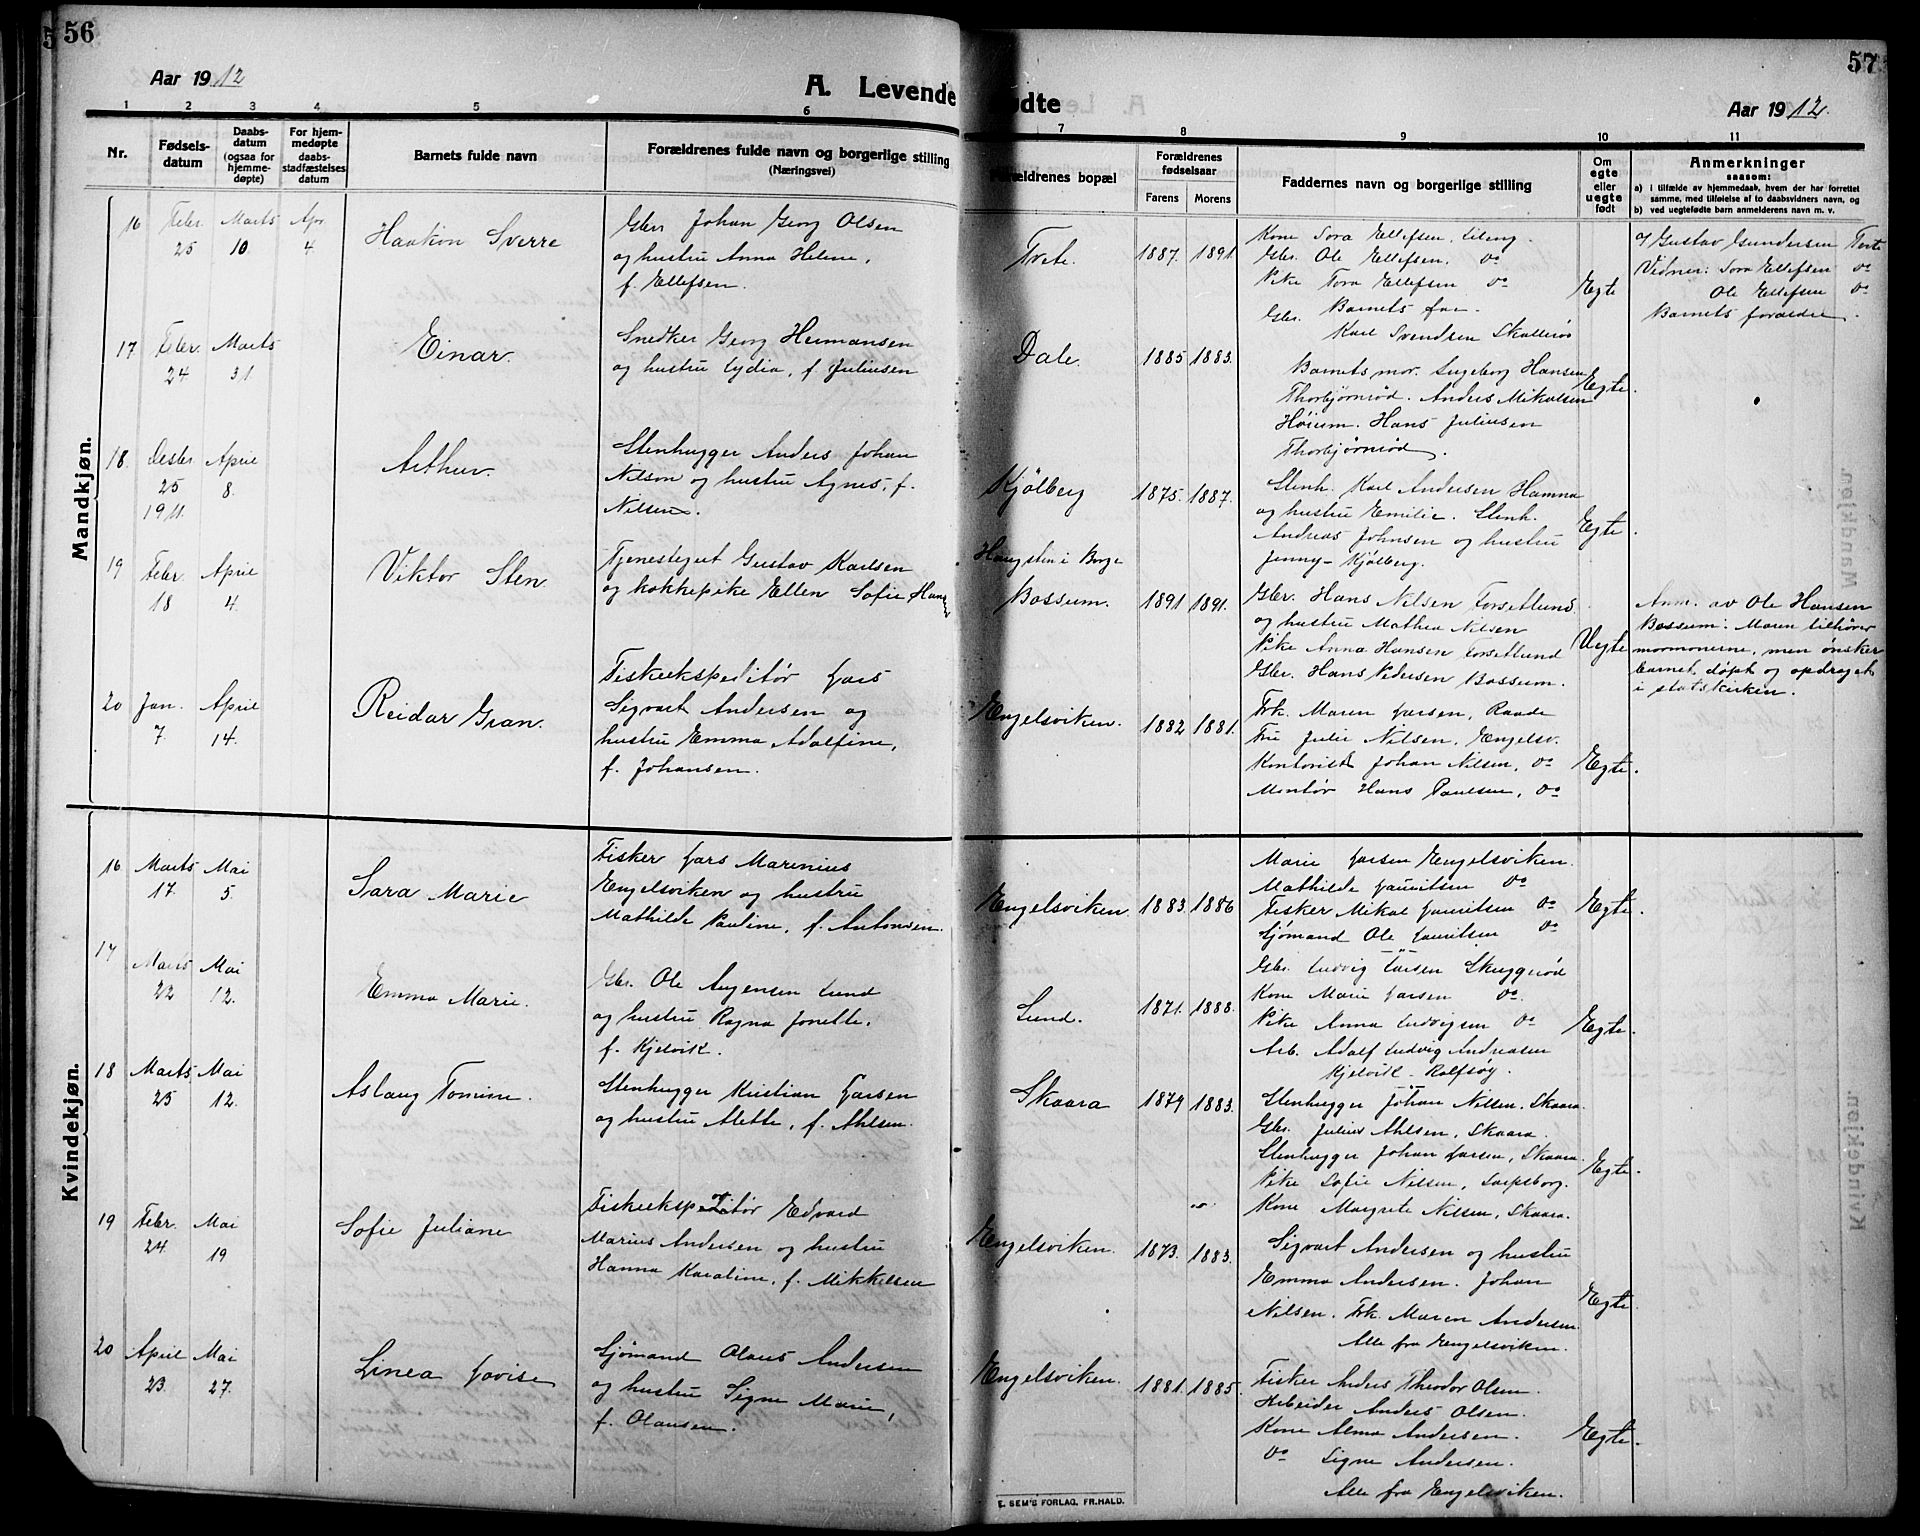 56
Aar 1912
A. Levende
1 2 3 4 5 6
Nr.
Fødsels-
datum
Daabs-
datum
(ogsaa for
hjemme-
døpte)
For hjem-
medøpte
daabs-
stadfæstelses
datum
Barnets fulde navn
Forældrenes fulde navn og borgerlige stilling
(Næringsvei)
Mandkjøn.
16 Febr. Marts Apr.
25 10 4
Haakon Sverre
Gbr. Johan Georg Olsen
og hustru Anna Helene,
f. Ellefsen.
17 Febr. Marts
24 31
Einar.
Snedker Georg Hermansen
og hustru Lydia, f. Juliusen
18. Desbr April
25 8.
1911.
Arthur.
Stenhugger Anders Johan
Nilson og hustru Agnes, f.
Nilsen.
19 Febr. April
18 4.
Viktor Sten.
Tjenestegut Gustav Karlsen
og kokkepike Ellen Sofie Hansen
20 Jan. April
7. 14.
Reidar Gran.
Fiskeekspeditør Lars
Sigvart Andersen og
hustru Emma Adolfine,
f. Johansen.
Kvindekjøn.
16 Marts Mai
17. 5.
Sara Marie
Fisker Lars Marenius
Engelsviken og hustru
Mathilde Pauline, f. Antonsen.
17 Marts Mai
22 12.
Emma Marie.
Gbr. Ole Augensen Lund
og hustru Ragna Jonette,
f. Kjelvik.
18 Marts Mai
25 12.
Aslaug Tomine.
Stenhugger Kristian Larsen
og hustru Alette, f. Ahlsen.
19 Febr. Mai
24. 19
Sofie Juliane
Fiskeekspeditør Edvard
Marius Andersen og hustru
Hanna Karoline, f. Mikkelsen
20 April Mai
23. 27.
Linea Lovise
Sjømand Olaus Andersen
og hustru Signe Marie,
f. Olausen.
57
ødte
Aar 1912.
7 8 9 10 11
Forældrenes bopæl
Forældrenes
fødselsaar
Farens Morens
Faddernes navn og borgerlige stilling
Om
egte
eller
uegte
født
Anmerkninger
saasom:
a) i tilfælde av hjemmedaab, hvem der har forrettet
samme, med tilføielse af to daabsvidners navn, og
b) ved uegtefødte barn anmelderens navn m. v.
Tvete. 1887. 1891.
Kone Sora Ellefsen,
Gbr. Ole Ellefsen. do
Pike Tora Ellefsen do
Gbr. Barnets far.
Karl Svendsen Skallerøs
Egte
af Gustav Gundersen Tvete
Vidner: Sora Ellefsen do
Ole Ellefsen do
Barnets forældre.
Dale. 1885 1883.
Barnets mor. Ingeborg Hansen
Thorbjørnrød. Anders Mikalsen
Høium. Hans Juliusen
Thorbjørnrød.
Egte.
Kjølberg 1875. 1887.
Stenh. Karl Andersen Hamna
og hustru Emilie. Stenh.
Andreas Johnsen og hustru
Jenny - Kjølberg.
Egte.
Haugsten i Borge
Bossum. 1891 1891.
Gbr. Hans Nilsen Torsetlund
og hustru Mathea Nilsen
Pike Anna Hansen Torsetlund
Gbr. Hans Pedersen Bossum.
Uegte
Anm. av Ole Hansen
Bossum. Moren tilhører
mormonerne, men ønsker
barnet døpt og opdraget
i statskirken.
Engelsviken. 1882 1881.
Frk. Maren Larsen, Raade
Fru Julie Nilsen, Engelsv.
Kontorist Johan Nilsen, do
Montør Hans Paulsen, do
Egte.
Engelsviken 1883. 1886
Marie Larsen Engelsviken.
Mathilde Lauritsen do
Fisker Mikal Lauritsen do
Sjømand Ole Lauritsen do
Egte.
Lund. 1871. 1888.
Gbr. Ludvig Larsen Skuggerød
Kone Marie Larsen do
Pike Anna Ludvigsen do
Arb. Adolf Ludvig Andreasen
Kjelvik - Rolfsøy.
Egte.
Skaara 1874 1883.
Stenhugger Johan Nilsen, Skaara
Gbr. Julius Ahlsen, Skaara.
Stenhugger Johan Larsen, Skaara.
Pike Sofie Nilsen, Sarpsborg.
Kone Margrete Nilsen, Skaara.
Egte.
Engelsviken. 1873. 1883.
Sigvart Andersen og hustru
Emma Andersen. Johan
Nilsen. Frk. Maren Andersen.
Alle fra Engelsviken.
Egte.
Engelsviken. 1881. 1885.
Fisker Anders Theodor Olsen.
Arbeider Anders Olsen.
Kone Alma Andersen.
do Signe Andersen.
Alle fra Engelsviken.
Egte.
E. SEM'S FORLAG, FR.HALD.